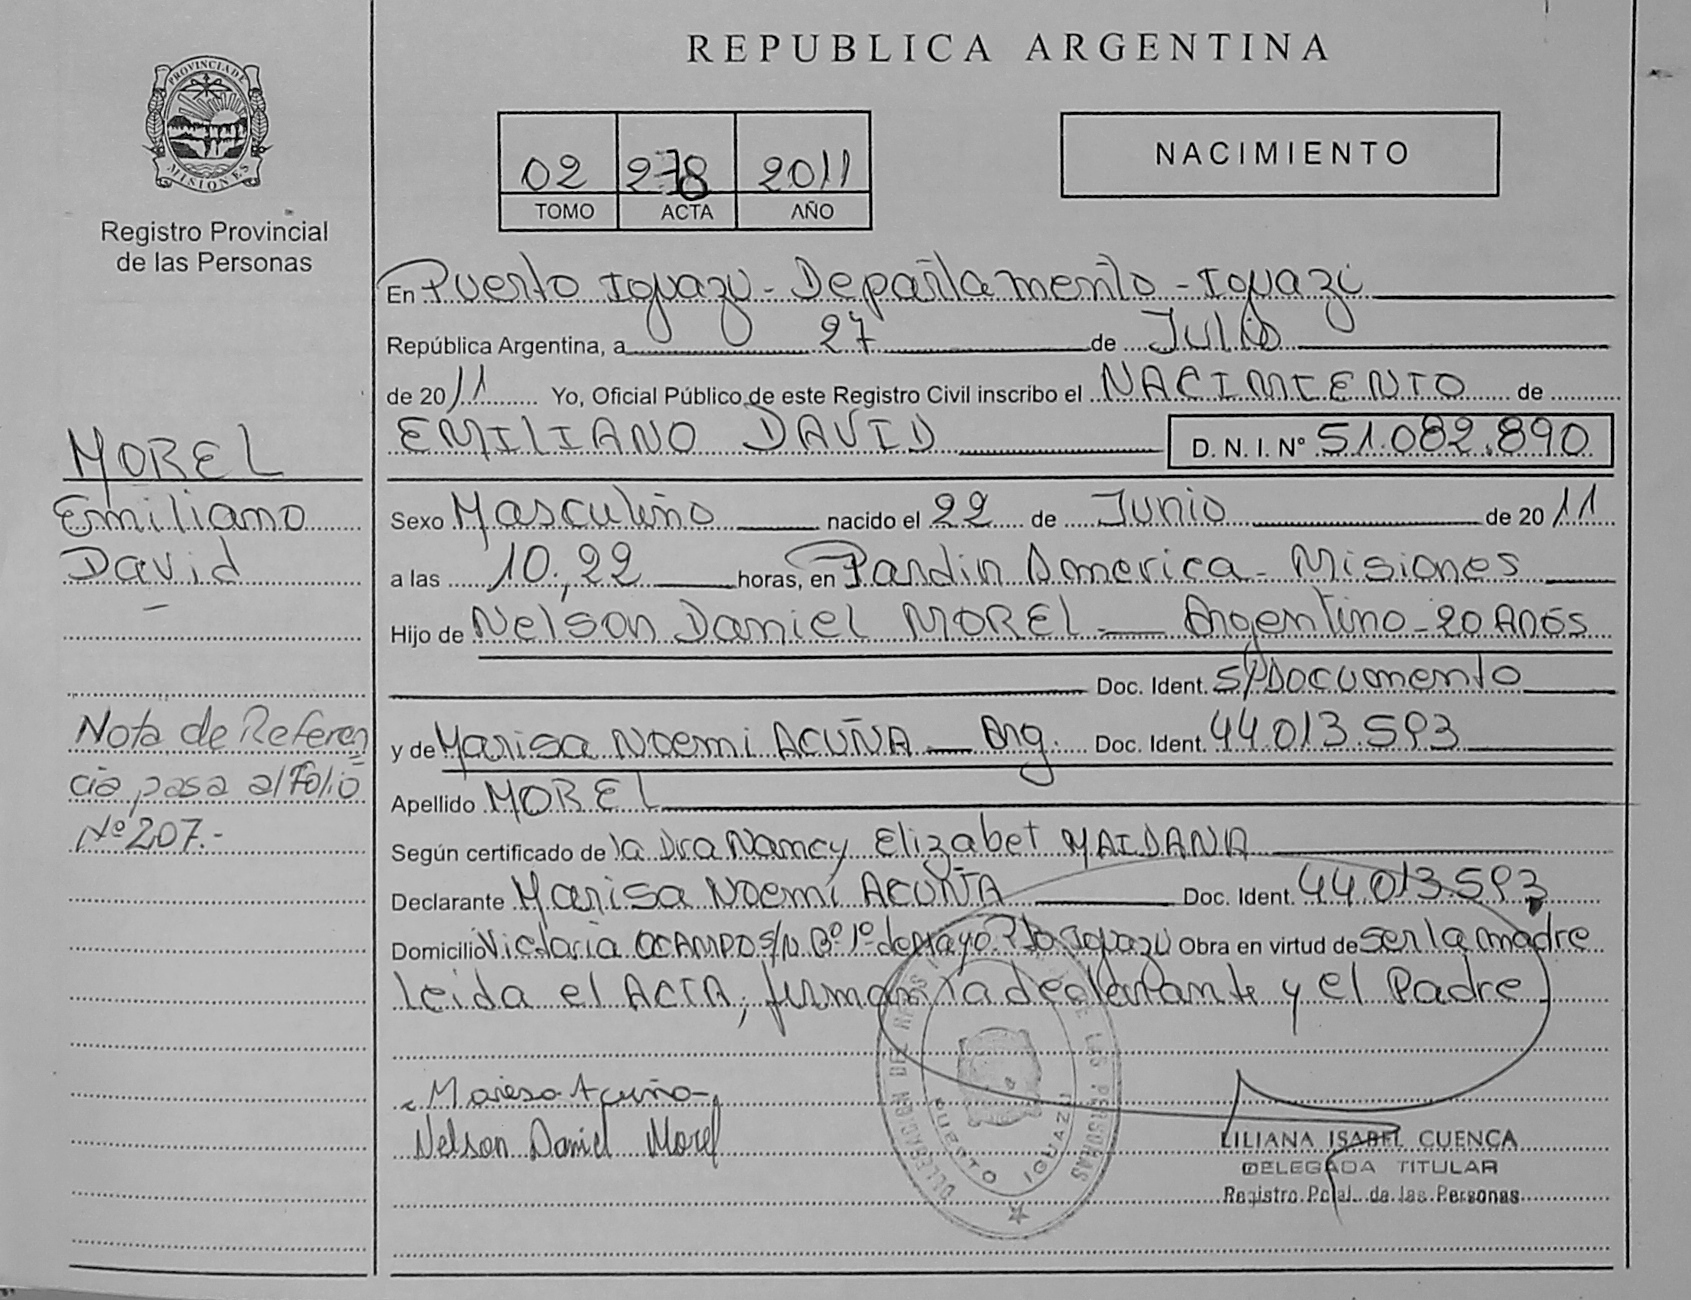 REPUBLICA ARGENTINA
PROVINCIA DE
MISIONES
Registro Provincial
de las Personas
02 278 2011
TOMO ACTA AÑO
NACIMIENTO
En Puerto Iguazu - Departamento - Iguazú
República Argentina, a 27 de Julio
de 2011 Yo, Oficial Público de este Registro Civil inscribo el NACIMIENTO de
EMILIANO DAVID D. N. I. Nº 51.082.890
Sexo Masculino nacido el 22 de Junio de 2011
a las 10,22 horas, en Jardin America - Misiones
Hijo de Nelson Daniel MOREL — Argentino - 20 Años
Doc. Ident. S/Documento
y de Marisa Noemi ACUÑA — Arg. Doc. Ident. 44.013.593
Apellido MOREL
Según certificado de la Dra Nancy Elizabet MAIDANA
Declarante Marisa Noemí ACUÑA Doc. Ident. 44.013.593
Domicilio Victoria OCAMPO S/N Bº 1º de Mayo Pto Iguazú Obra en virtud de ser la madre
Leida el ACTA, firman la declarante y el Padre
Marisa Acuña
Nelson Daniel Morel
DELEGACION DEL REGISTRO DE LAS PERSONAS
PUERTO IGUAZU
LILIANA ISABEL CUENCA
DELEGADA TITULAR
Registro Pcial. de las Personas
MOREL
Emiliano
David
Nota de Referen
cia pasa al Folio
Nº 207.-